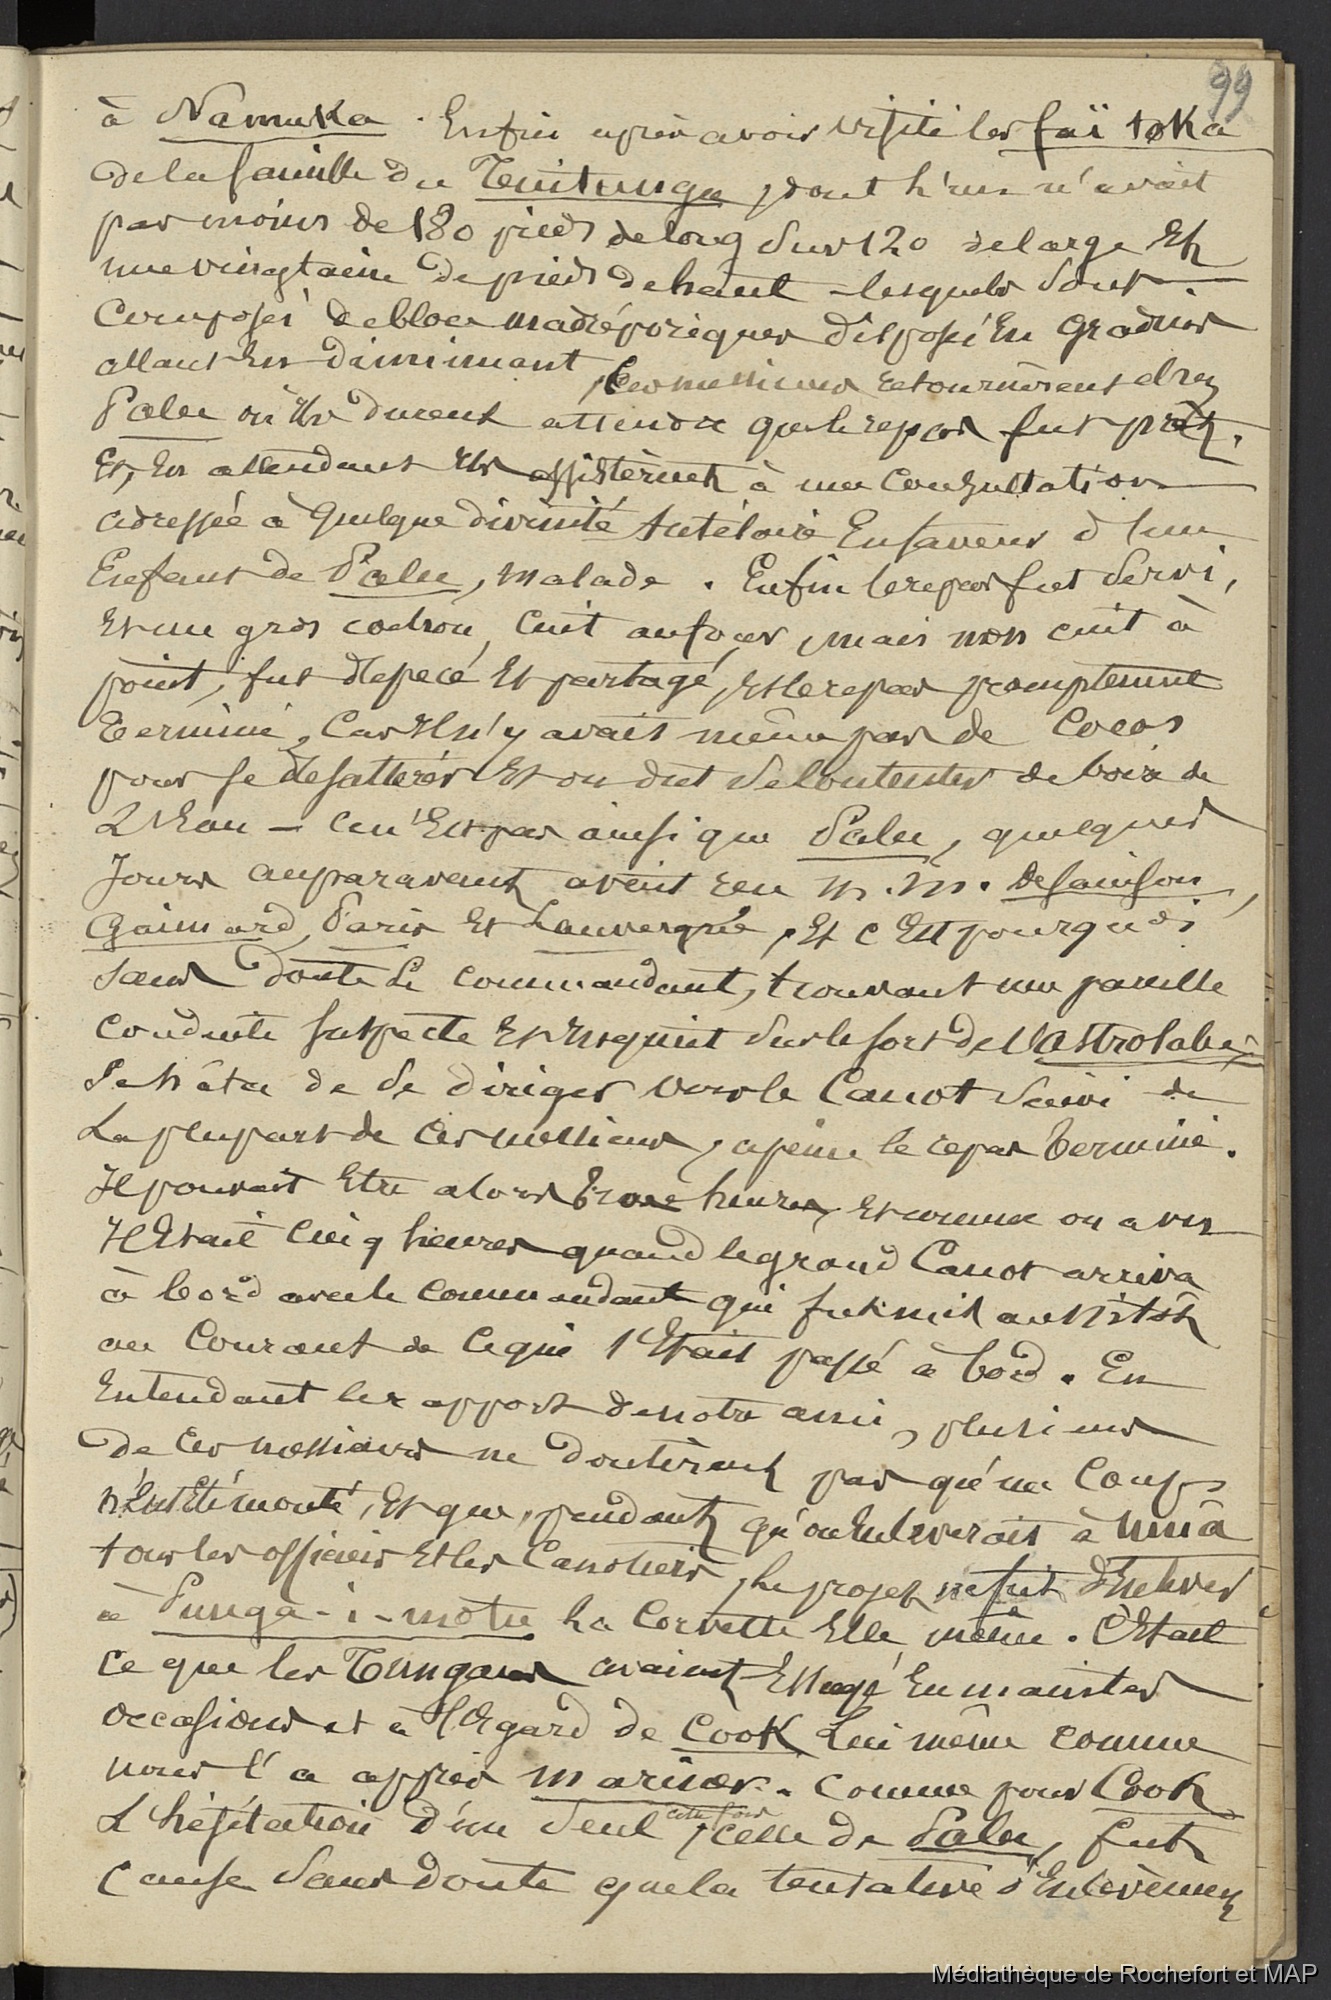 99
à Namuka. Enfin après avoir visité les faï toka
de la famille du Touitonga, dont l'un n'avait
pas moins de 180 pieds de long sur 120 de large Et
une vingtaine de pieds de haut – lesquels sont
Composés de blocs madréporiques disposés En gradins
allant En diminuant, Ces messieurs retournèrent chez
Palu où Ils durent attendre que le repas fut prêt.
Et, En attendant Ils assistèrent à une Consultation
adressée à quelque divinité tutélaire En faveur d'un
Enfant de Palu, malade. Enfin le repas fut servi,
Et un gros cochon, Cuit au four, mais non cuit à
point, fut dépecé Et partagé, Et le repas promptement
terminé, Car Il n'y avait même pas de Cocos
pour se désaltérer Et on dut se Contenter de boire de
L'Eau – Ce n'Est pas ainsi que Palu, quelques
Jours auparavant avait reçu M.M. de Sainson,
Gaimard, Paris Et Lauvergne, Et c'Est pourquoi
sans doute Le commandant, trouvant une pareille
conduite suspecte Et Inquiet sur le sort de l'astrolabe,
se hâta de se diriger vers le Canot suivi de
La plupart de Ces messieurs, a peine le repas terminé.
Il pouvait Etre alors trois heures, Et comme on a vu
Il Etait Cinq heures quand le grand Canot arriva
à bord avec le Commandant qui fut mis aussitôt
au Courant de Ce qui s'Etait passé à bord. En
Entendant le rapport de notre ami, plusieurs
de Ces messieurs ne doutèrent pas qu'un Coup
n'Eut Eté monté, Et que, pendant qu'on Enlèverait à Mouà
tous les officiers Et les Canotiers, Le projet ne fut d'Enlever
à Panga-i-motu la Corvette Elle même. C'Etait
Ce que les Tongans avaient Essayé En maintes
occasions et à l'Egard de Cook Lui même comme
nous l'a appris Mariner. Comme pour Cook
L'hésitation d'un seul, cette fois celle de Palu, fut
Cause sans doute que la tentative d'Enlèvement
Médiathèque de Rochefort et MAP